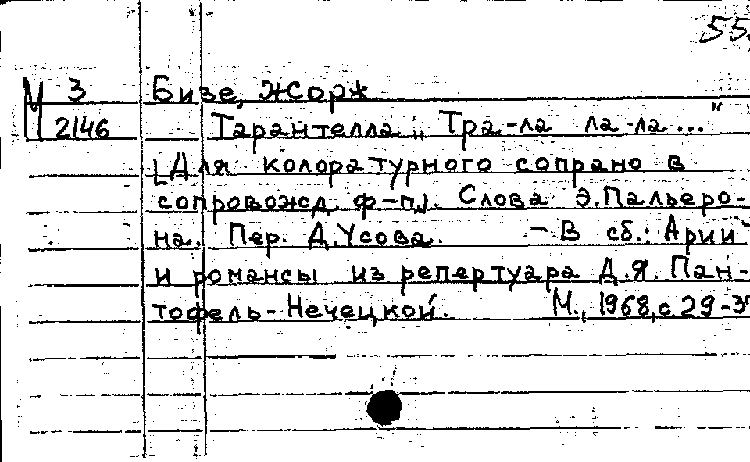 55
М 3 Бизе, Жорж
2146 Тарантелла „Тра-ла ла-ла..."
[Для колоратурного сопрано в
сопровожд. ф-п]. Слова Э.Пальеро-
на. Пер. Д.Усова. — В сб.: Арии
и романсы из репертуара Д.Я. Пан-
тофель-Нечецкой. М., 1968, с 29-3